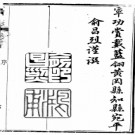 軍功賞戴藍翎黃岡縣知縣宛平
俞昌烈謹撰